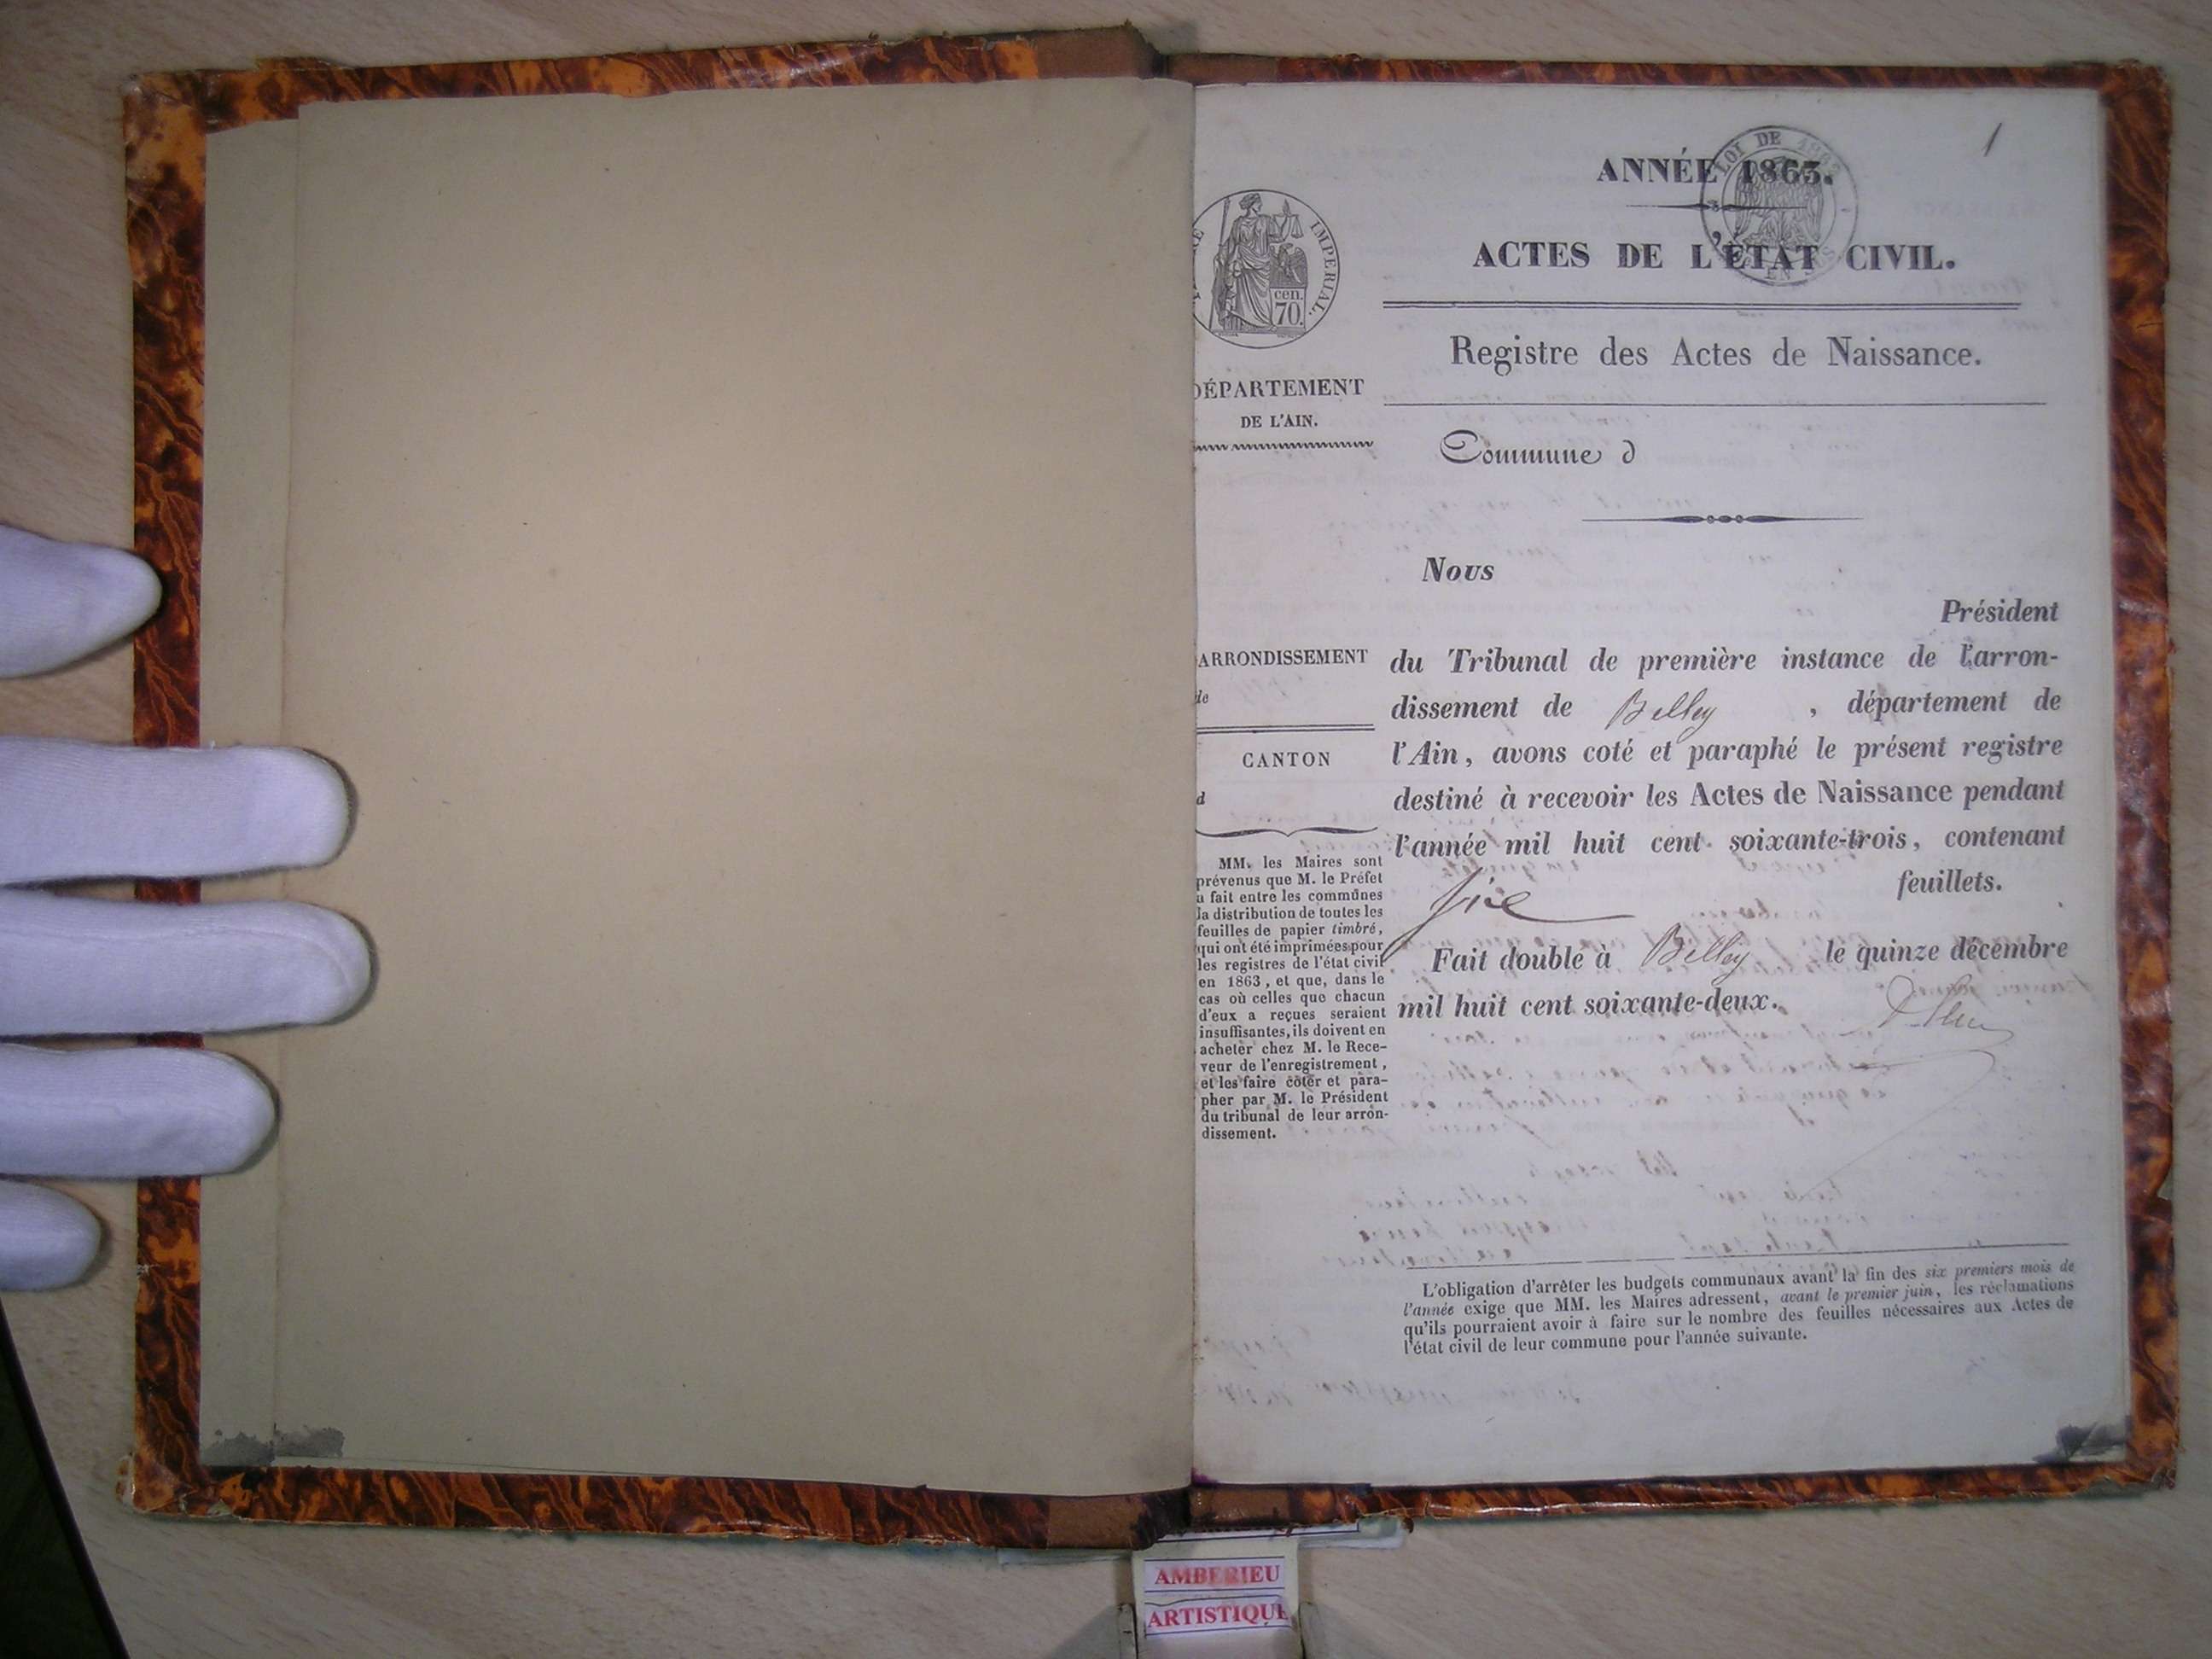 1
LOI DE 1862
EN SUS
ANNÉE 1863.
IMPERIAL.
cen.
70.
ACTES DE L'ÉTAT CIVIL.
Registre des Actes de Naissance.
DÉPARTEMENT
DE L'AIN.
Commune d
Nous
Président
du Tribunal de première instance de l'arron-
dissement de Belley , département de
l'Ain, avons coté et paraphé le présent registre
destiné à recevoir les Actes de Naissance pendant
l'année mil huit cent soixante-trois, contenant
feuillets.
Fait double à Belley le quinze décembre
mil huit cent soixante-deux.
ARRONDISSEMENT
de
CANTON
d
MM. les Maires sont
prévenus que M. le Préfet
a fait entre les communes
la distribution de toutes les
feuilles de papier timbré,
qui ont été imprimées pour
les registres de l'état civil
en 1863, et que, dans le
cas où celles que chacun
d'eux a reçues seraient
insuffisantes, ils doivent en
acheter chez M. le Rece-
veur de l'enregistrement,
et les faire côter et para-
pher par M. le Président
du tribunal de leur arron-
dissement.
L'obligation d'arrêter les budgets communaux avant la fin des six premiers mois de
l'année exige que MM. les Maires adressent, avant le premier juin, les réclamations
qu'ils pourraient avoir à faire sur le nombre des feuilles nécessaires aux Actes de
l'état civil de leur commune pour l'année suivante.
AMBERIEU
ARTISTIQUE